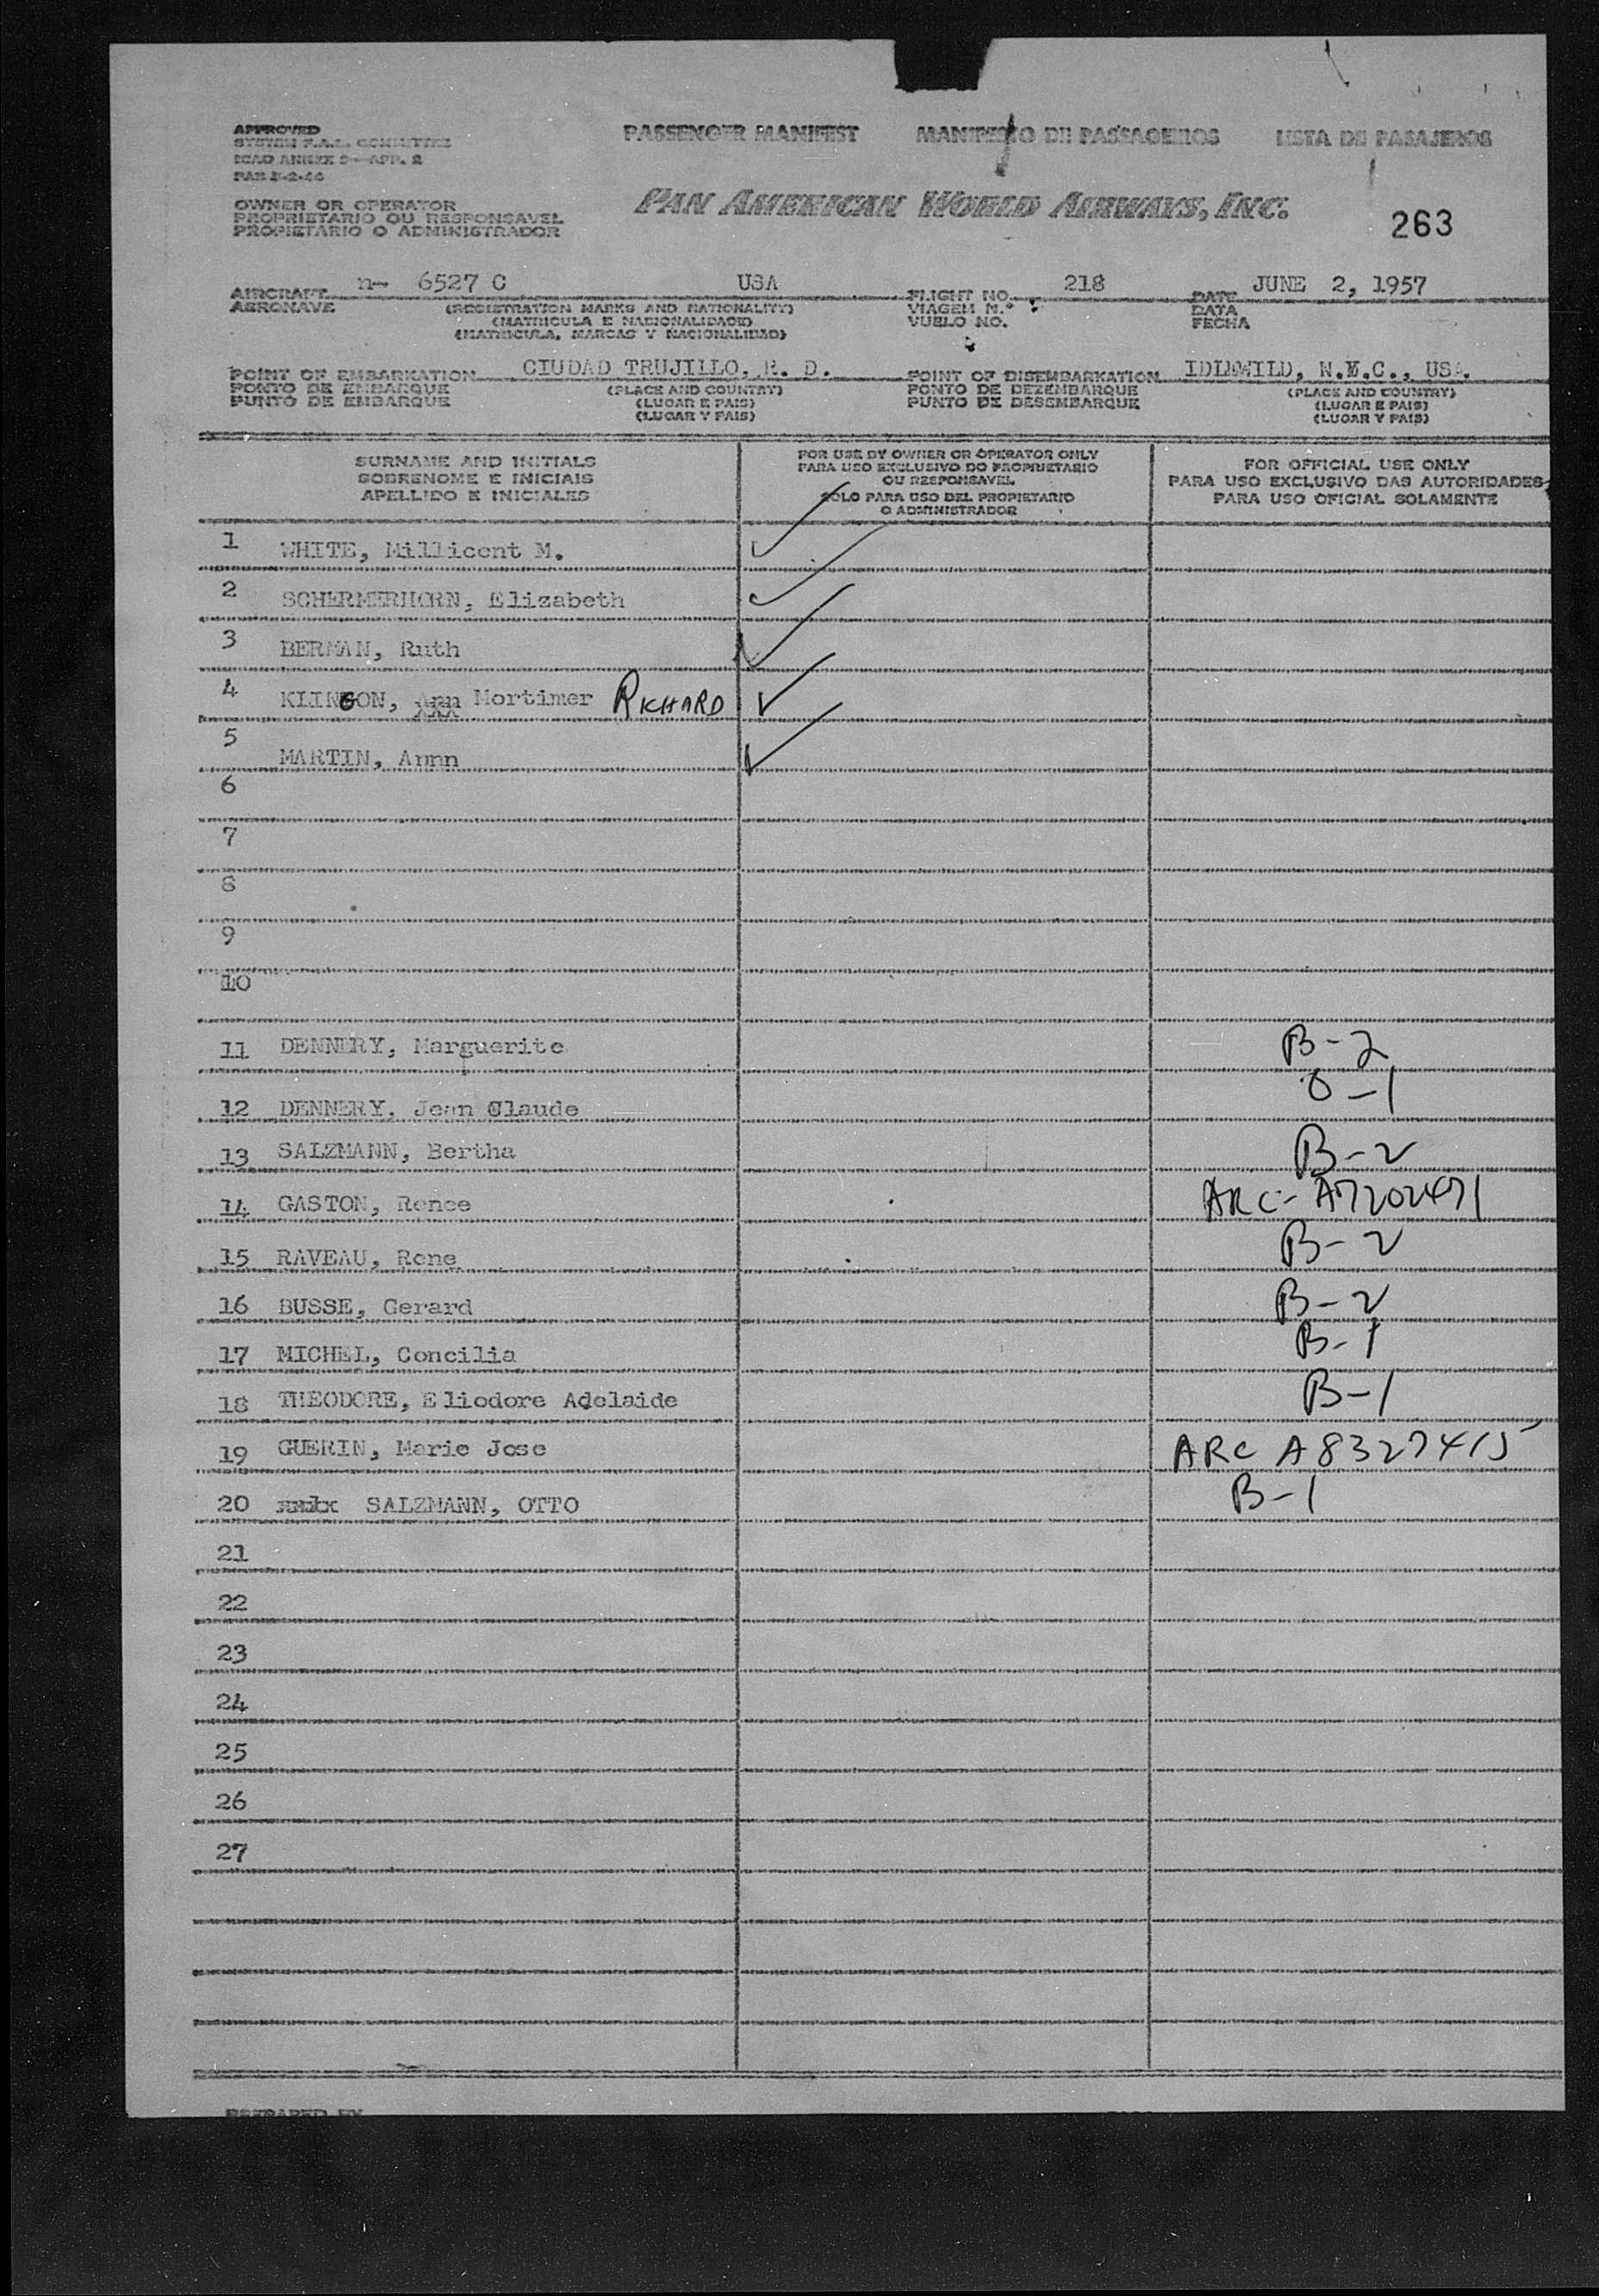 APPROVED
SYSTEM F.A.L. COMMITTEE
ICAO ANNEX 9—APP. 2
PASSENGER MANIFEST MANIFESTO DE PASSAGEIROS LISTA DE PASAJEROS
OWNER OR OPERATOR
PROPRIETARIO OU RESPONSAVEL
PROPIETARIO O ADMINISTRADOR
PAN AMERICAN WORLD AIRWAYS, INC.
263
AIRCRAFT n- 6527 C USA FLIGHT NO. 218 DATE JUNE 2, 1957
AERONAVE (REGISTRATION MARKS AND NATIONALITY) VIAGEM N.º DATA
(MATRICULA E NACIONALIDADE) VUELO NO. FECHA
(MATRICULA, MARCAS Y NACIONALIDAD)
POINT OF EMBARKATION CIUDAD TRUJILLO, R. D. POINT OF DISEMBARKATION IDLEWILD, N.Y.C., USA.
PONTO DE EMBARQUE (PLACE AND COUNTRY) PONTO DE DEZEMBARQUE (PLACE AND COUNTRY)
PUNTO DE EMBARQUE (LUGAR E PAIS) PUNTO DE DESEMBARQUE (LUGAR E PAIS)
(LUGAR Y PAIS) (LUGAR Y PAIS)
SURNAME AND INITIALS
SOBRENOME E INICIAIS
APELLIDO E INICIALES
FOR USE BY OWNER OR OPERATOR ONLY
PARA USO EXCLUSIVO DO PROPRIETARIO
OU RESPONSAVEL
SOLO PARA USO DEL PROPIETARIO
O ADMINISTRADOR
FOR OFFICIAL USE ONLY
PARA USO EXCLUSIVO DAS AUTORIDADES
PARA USO OFICIAL SOLAMENTE
1 WHITE, Millicent M.
2 SCHERMERHORN, Elizabeth
3 BERMAN, Ruth
4 KLINGON, Ann Mortimer RICHARD
5 MARTIN, Annn
6
7
8
9
10
11 DENNERY, Marguerite B-2
12 DENNERY, Jean Claude O-1
13 SALZMANN, Bertha B-2
14 GASTON, Renee ARC- A7202471
15 RAVEAU, Rene B-2
16 BUSSE, Gerard B-2
17 MICHEL, Concilia B-1
18 THEODORE, Eliodore Adelaide B-1
19 GUERIN, Marie Jose ARC A8327415
20 SALZMANN, OTTO B-1
21
22
23
24
25
26
27
PREPARED BY